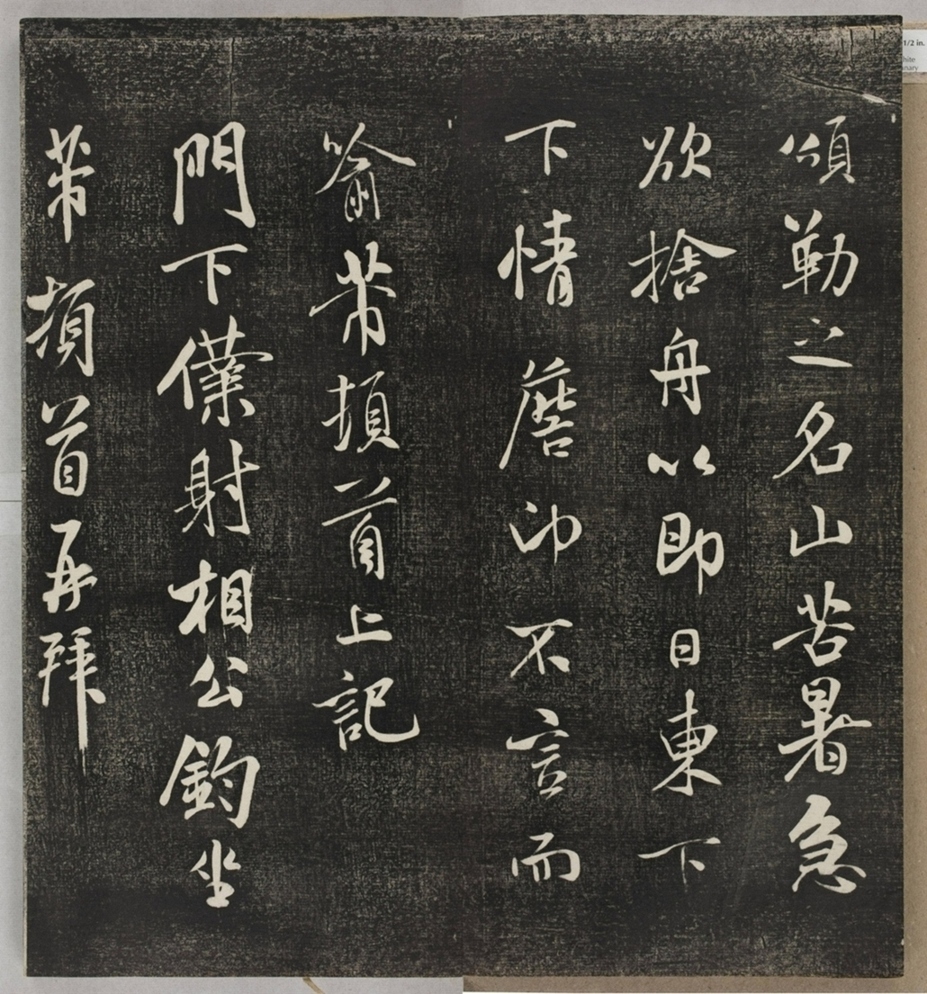 頌勒之名山苦暑急
欲捨舟以即日東下
下情蘑卬不言而
喻芾頓首上記
門下僕射相公鈞坐
芾頓首再拜
1/2 in.